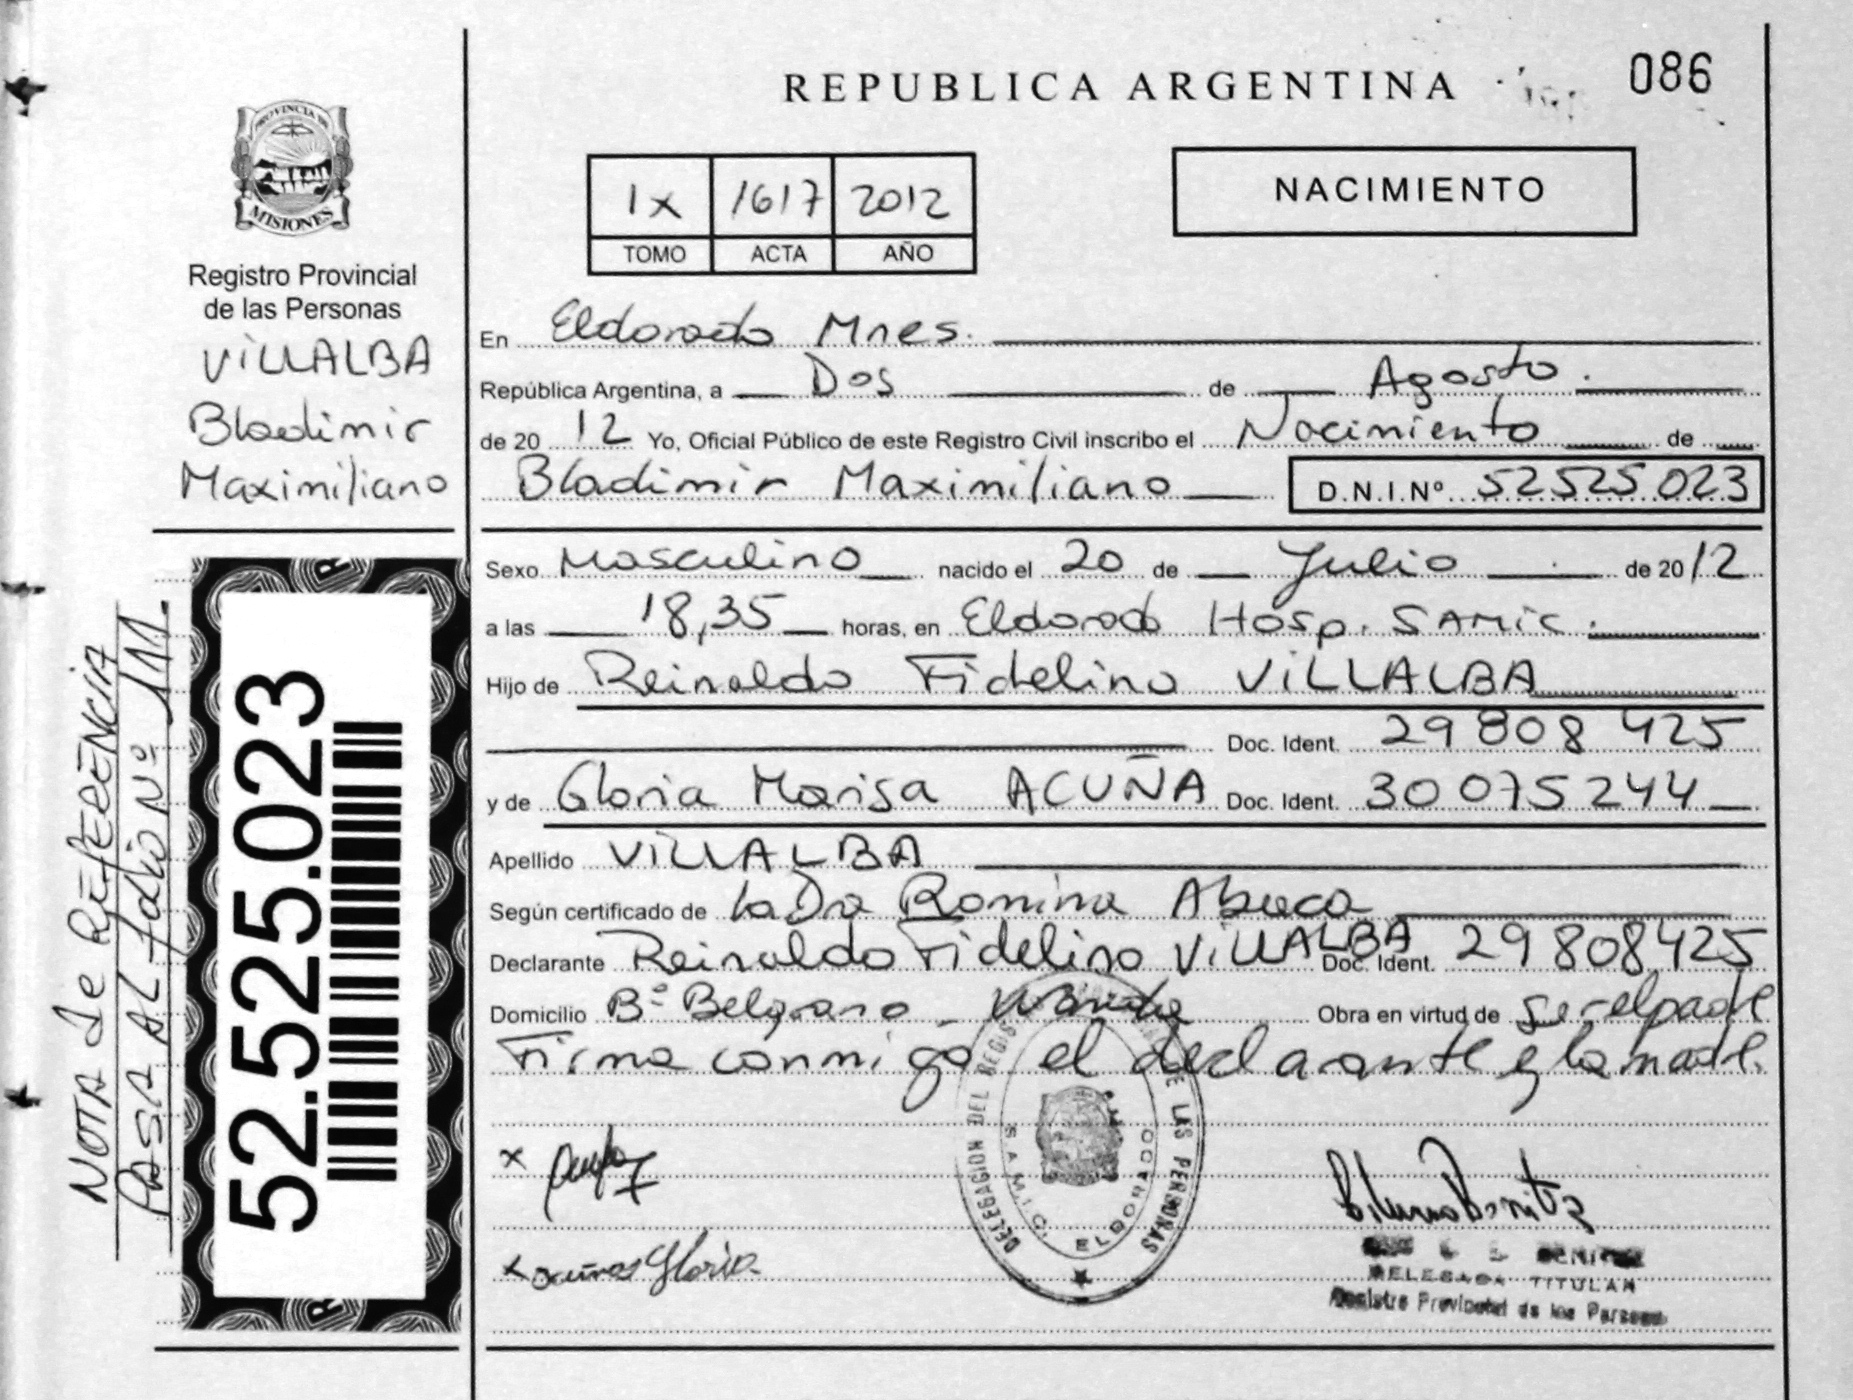 REPUBLICA ARGENTINA
086
PROVINCIA DE
MISIONES
Registro Provincial
de las Personas
VILLALBA
Bladimir
Maximiliano
NOTA de REFERENCIA
PASA AL folio Nº 111
52.525.023
IX 1617 2012
TOMO ACTA AÑO
NACIMIENTO
En Eldorado Mnes.
República Argentina, a Dos de Agosto.
de 20 12 Yo, Oficial Público de este Registro Civil inscribo el Nacimiento de
Bladimir Maximiliano D.N.I.Nº 52525023
Sexo Masculino nacido el 20 de Julio de 2012
a las 18,35 horas, en Eldorado Hosp. SAMIC.
Hijo de Reinaldo Fidelino VILLALBA
Doc. Ident. 29 808 425
y de Gloria Marisa ACUÑA Doc. Ident. 30 075 244
Apellido VILLALBA
Según certificado de la Dra Romina
Declarante Reinaldo Fidelino VILLALBA Doc. Ident. 29 808 425
Domicilio Bº Belgrano - Wanda Obra en virtud de ser el padre
Firma conmigo el declarante y la madre.
DELEGACION DEL REGISTRO PROVINCIAL DE LAS PERSONAS
S.A.M.I.C. ELDORADO
x
x Acuña Gloria
BENITEZ
DELEGADA TITULAR
Registro Provincial de las Personas